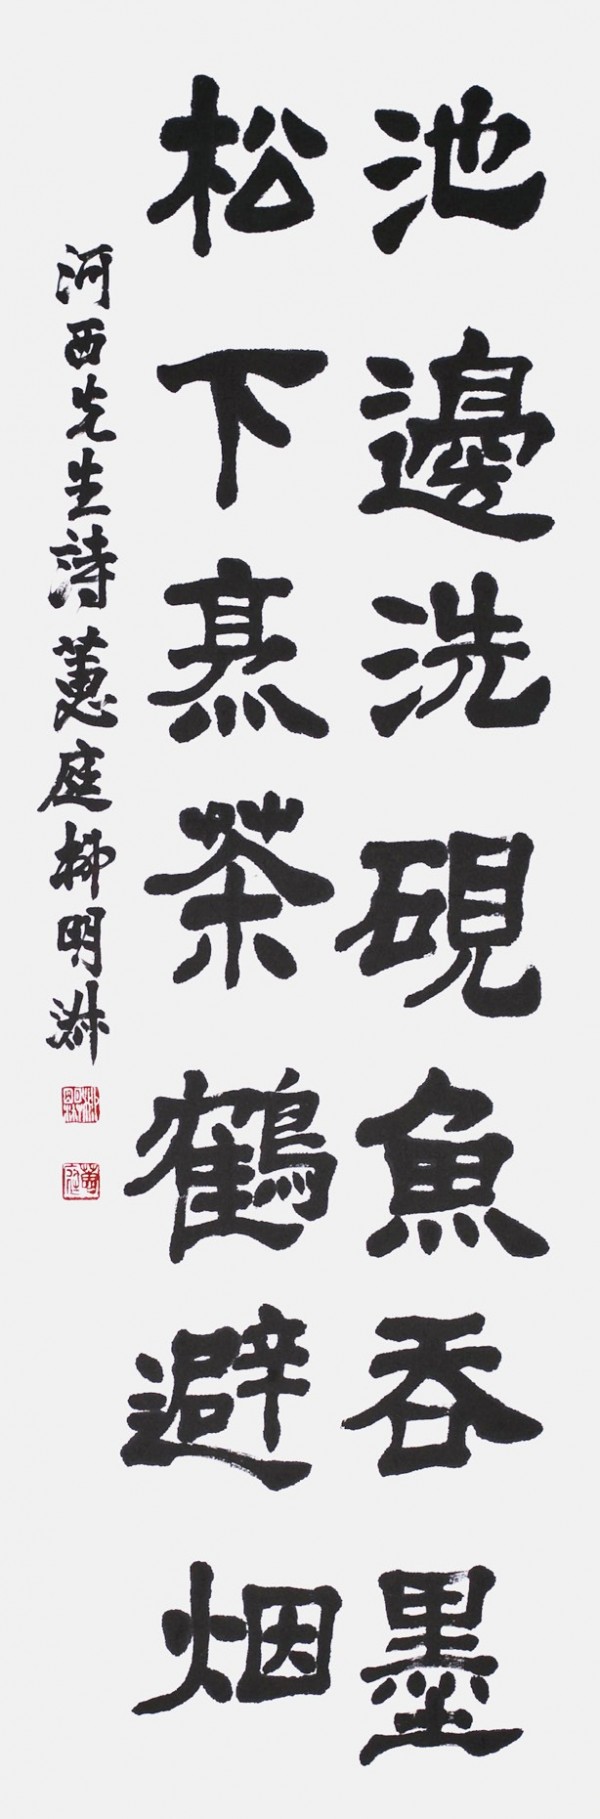 池邊洗硯魚吞墨
松下烹茶鶴避烟
河西先生詩蕙庭柳明